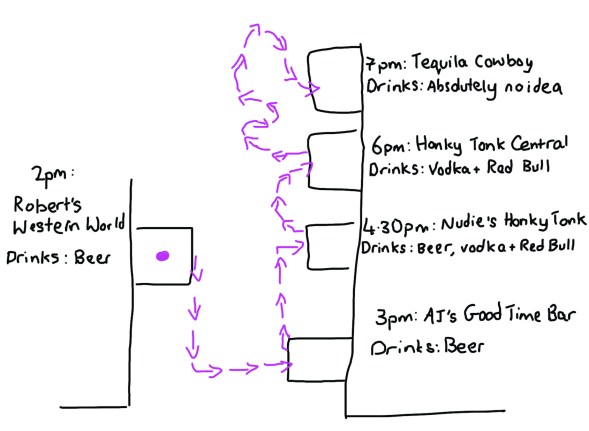 7pm: Tequila Cowboy
Drinks: Absdutely no idea
6pm: Honky Tonk Central
Drinks: Vodka + Rad Bull
2pm:
Robert's
Western World
Drinks: Beer
4.30pm: Nudie's Honky Tonk
Drinks: Beer, vodka + Red Bull
3pm: AJ's Good Time Bar
Drinks: Beer